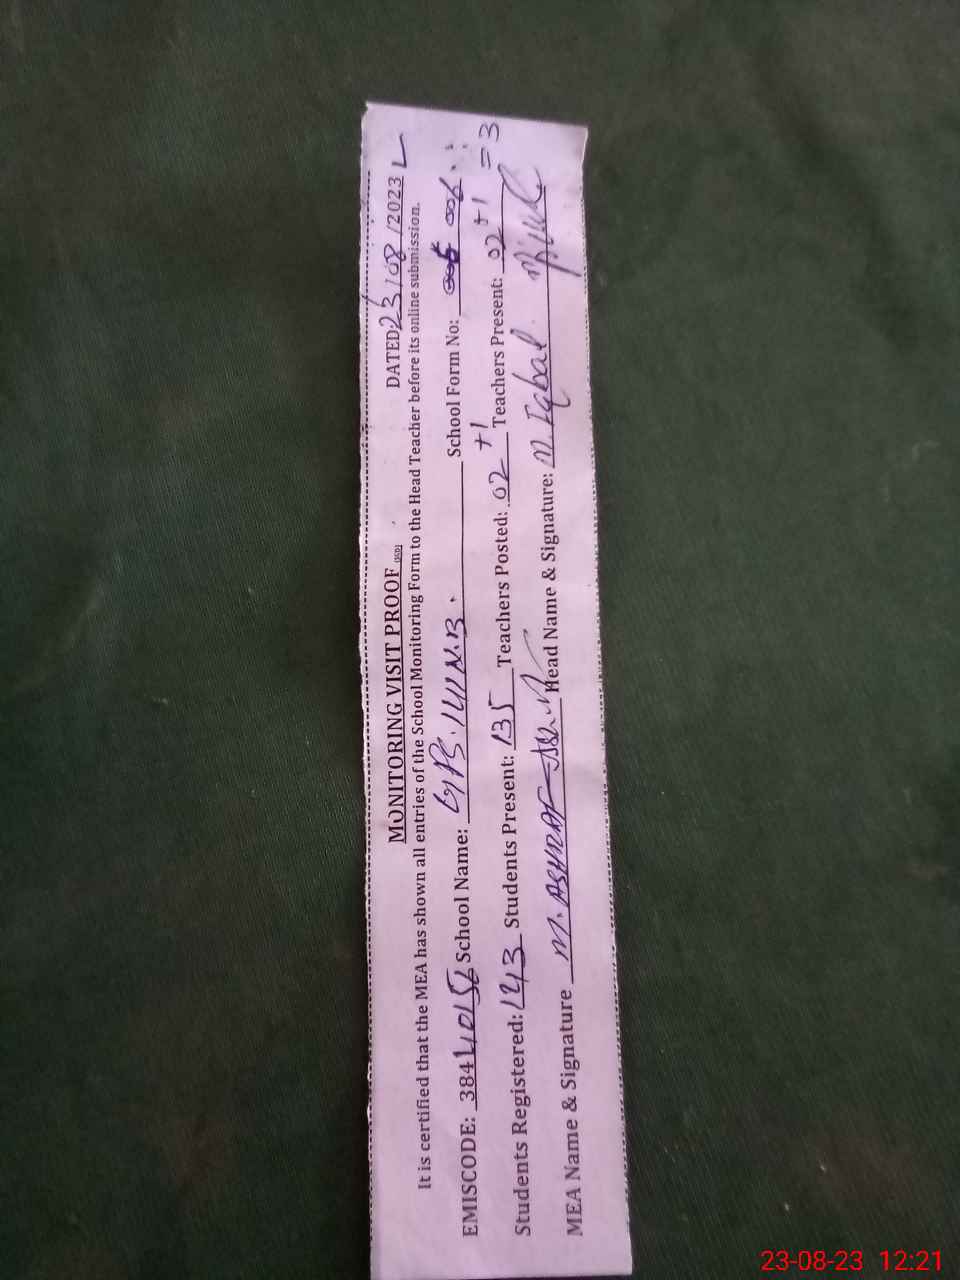 MONITORING VISIT PROOF (SED) DATED: 23/08/2023 L
It is certified that the MEA has shown all entries of the School Monitoring Form to the Head Teacher before its online submission.
EMISCODE: 38440156 School Name: GPS. 141 N.B. School Form No: 006
Students Registered: 143 Students Present: 135 Teachers Posted: 02 +1 Teachers Present: 02 +1 = 3
MEA Name & Signature M. ASHRAF Head Name & Signature: M. Iqbal
23-08-23 12:21